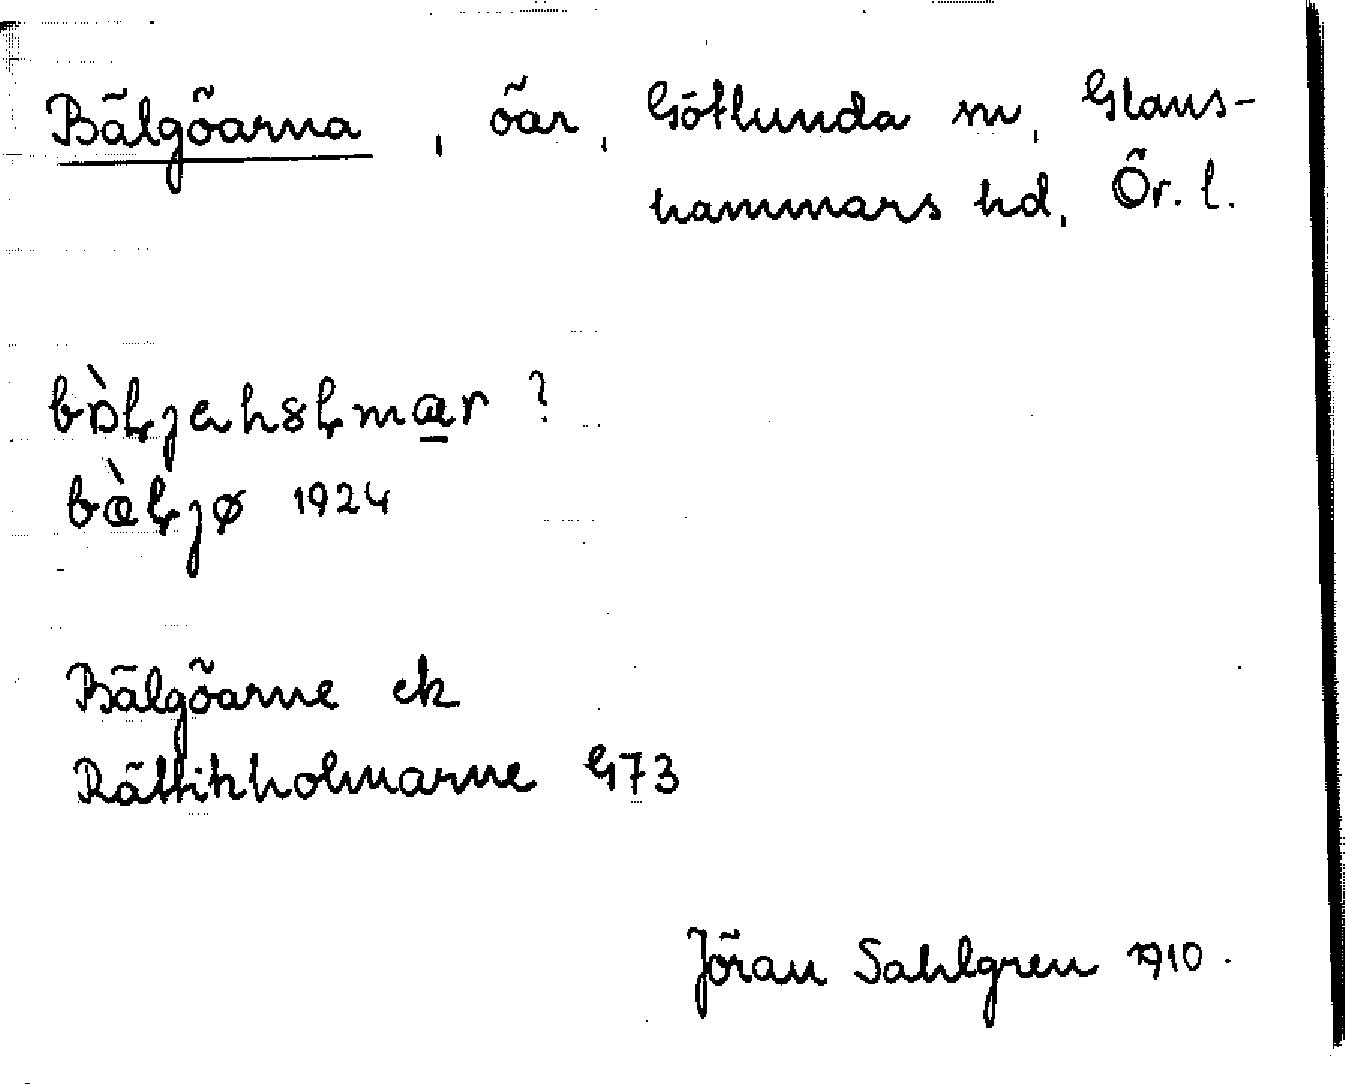 Bälgöarna, öar, Götlunda sn, Glans-
hammars hd, Ör. l.
bæljø 1924
Bälgöarne ek
Rättikholmarne G73
Jöran Sahlgren 1910.